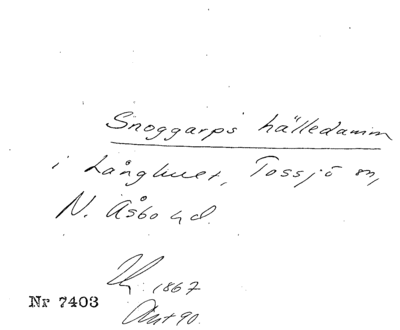 Snoggarps hälledamm
i Långhult, Tossjö sn,
N. Åsbo hd.
1867
Nr 7403
90.